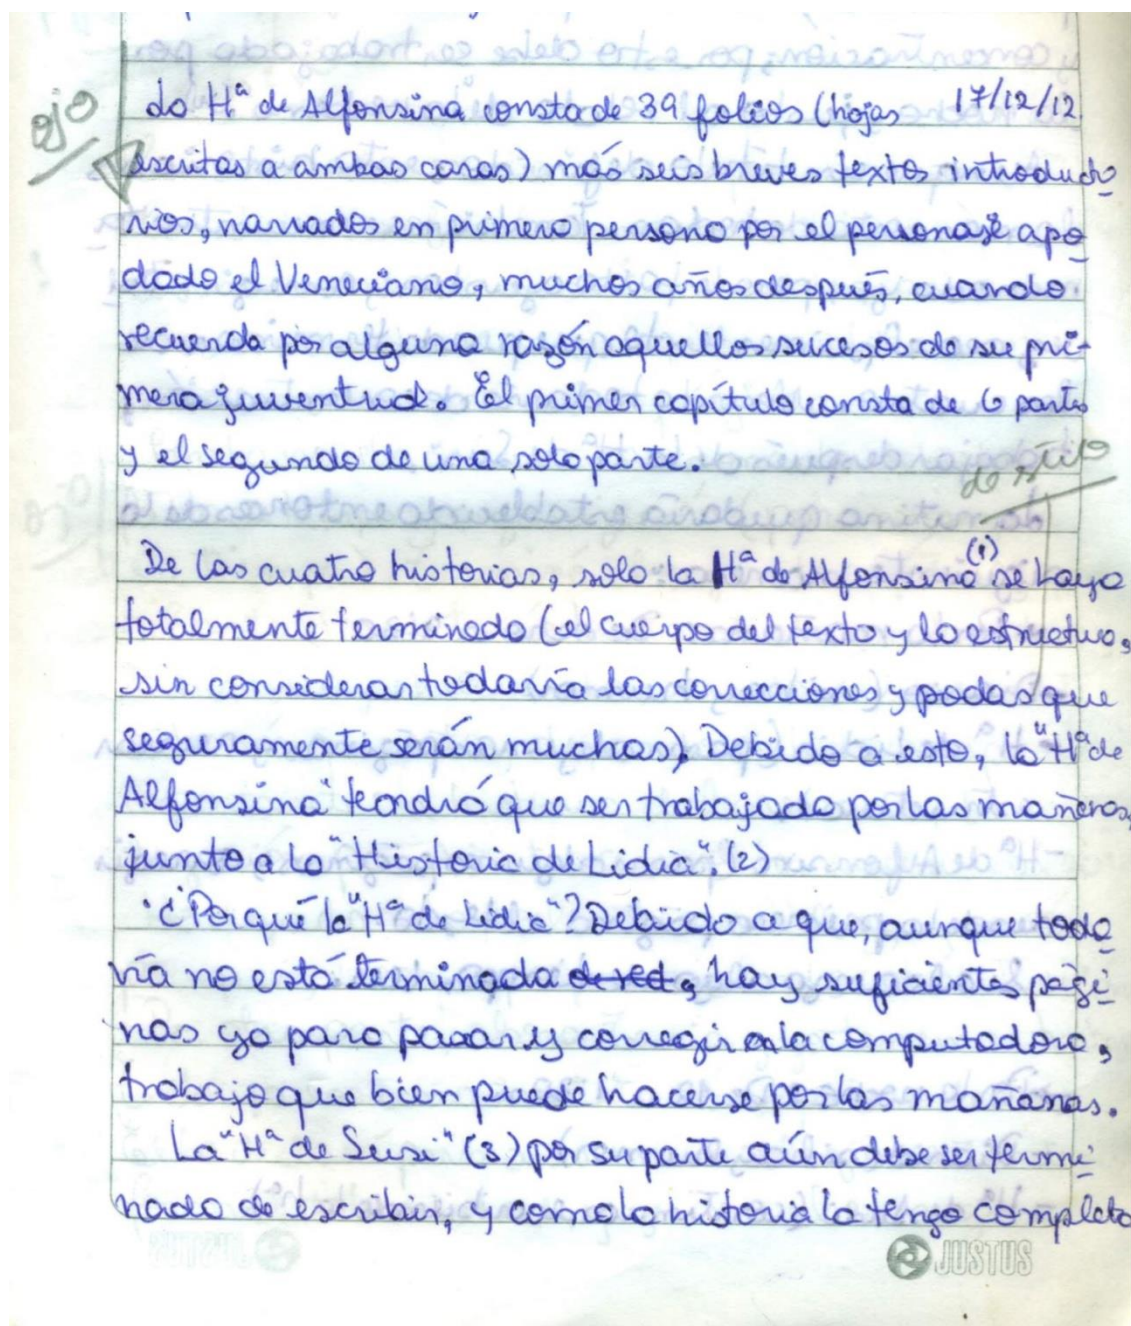 ojo
La Hª de Alfonsina consta de 39 folios (hojas 17/12/12
escritas a ambas caras) más seis breves textos introducto
rios, narrados en primera persona por el personaje apo
dado el Veneciano, muchos años después, cuando
recuerda por alguna razón aquellos sucesos de su pri-
mera juventud. El primer capítulo consta de 6 partes
y el segundo de una sola parte.
De las cuatro historias, solo la Hª de Alfonsina (1) se haya
totalmente terminada (el cuerpo del texto y la estructura,
sin considerar todavía las correcciones y podas que
seguramente serán muchas). Debido a esto, la "Hª de
Alfonsina" tendrá que ser trabajada por las mañanas,
junto a la "Historia de Lidia". (2)
¿Por qué la "Hª de Lidia"? Debido a que, aunque toda
vía no está terminada de red, hay suficientes pági
nas ya para pasar y corregir en la computadora,
trabajo que bien puede hacerse por las mañanas.
La "Hª de Susi" (3) por su parte aún debe ser termi
nada de escribir, y como la historia la tengo completa
JUSTUS